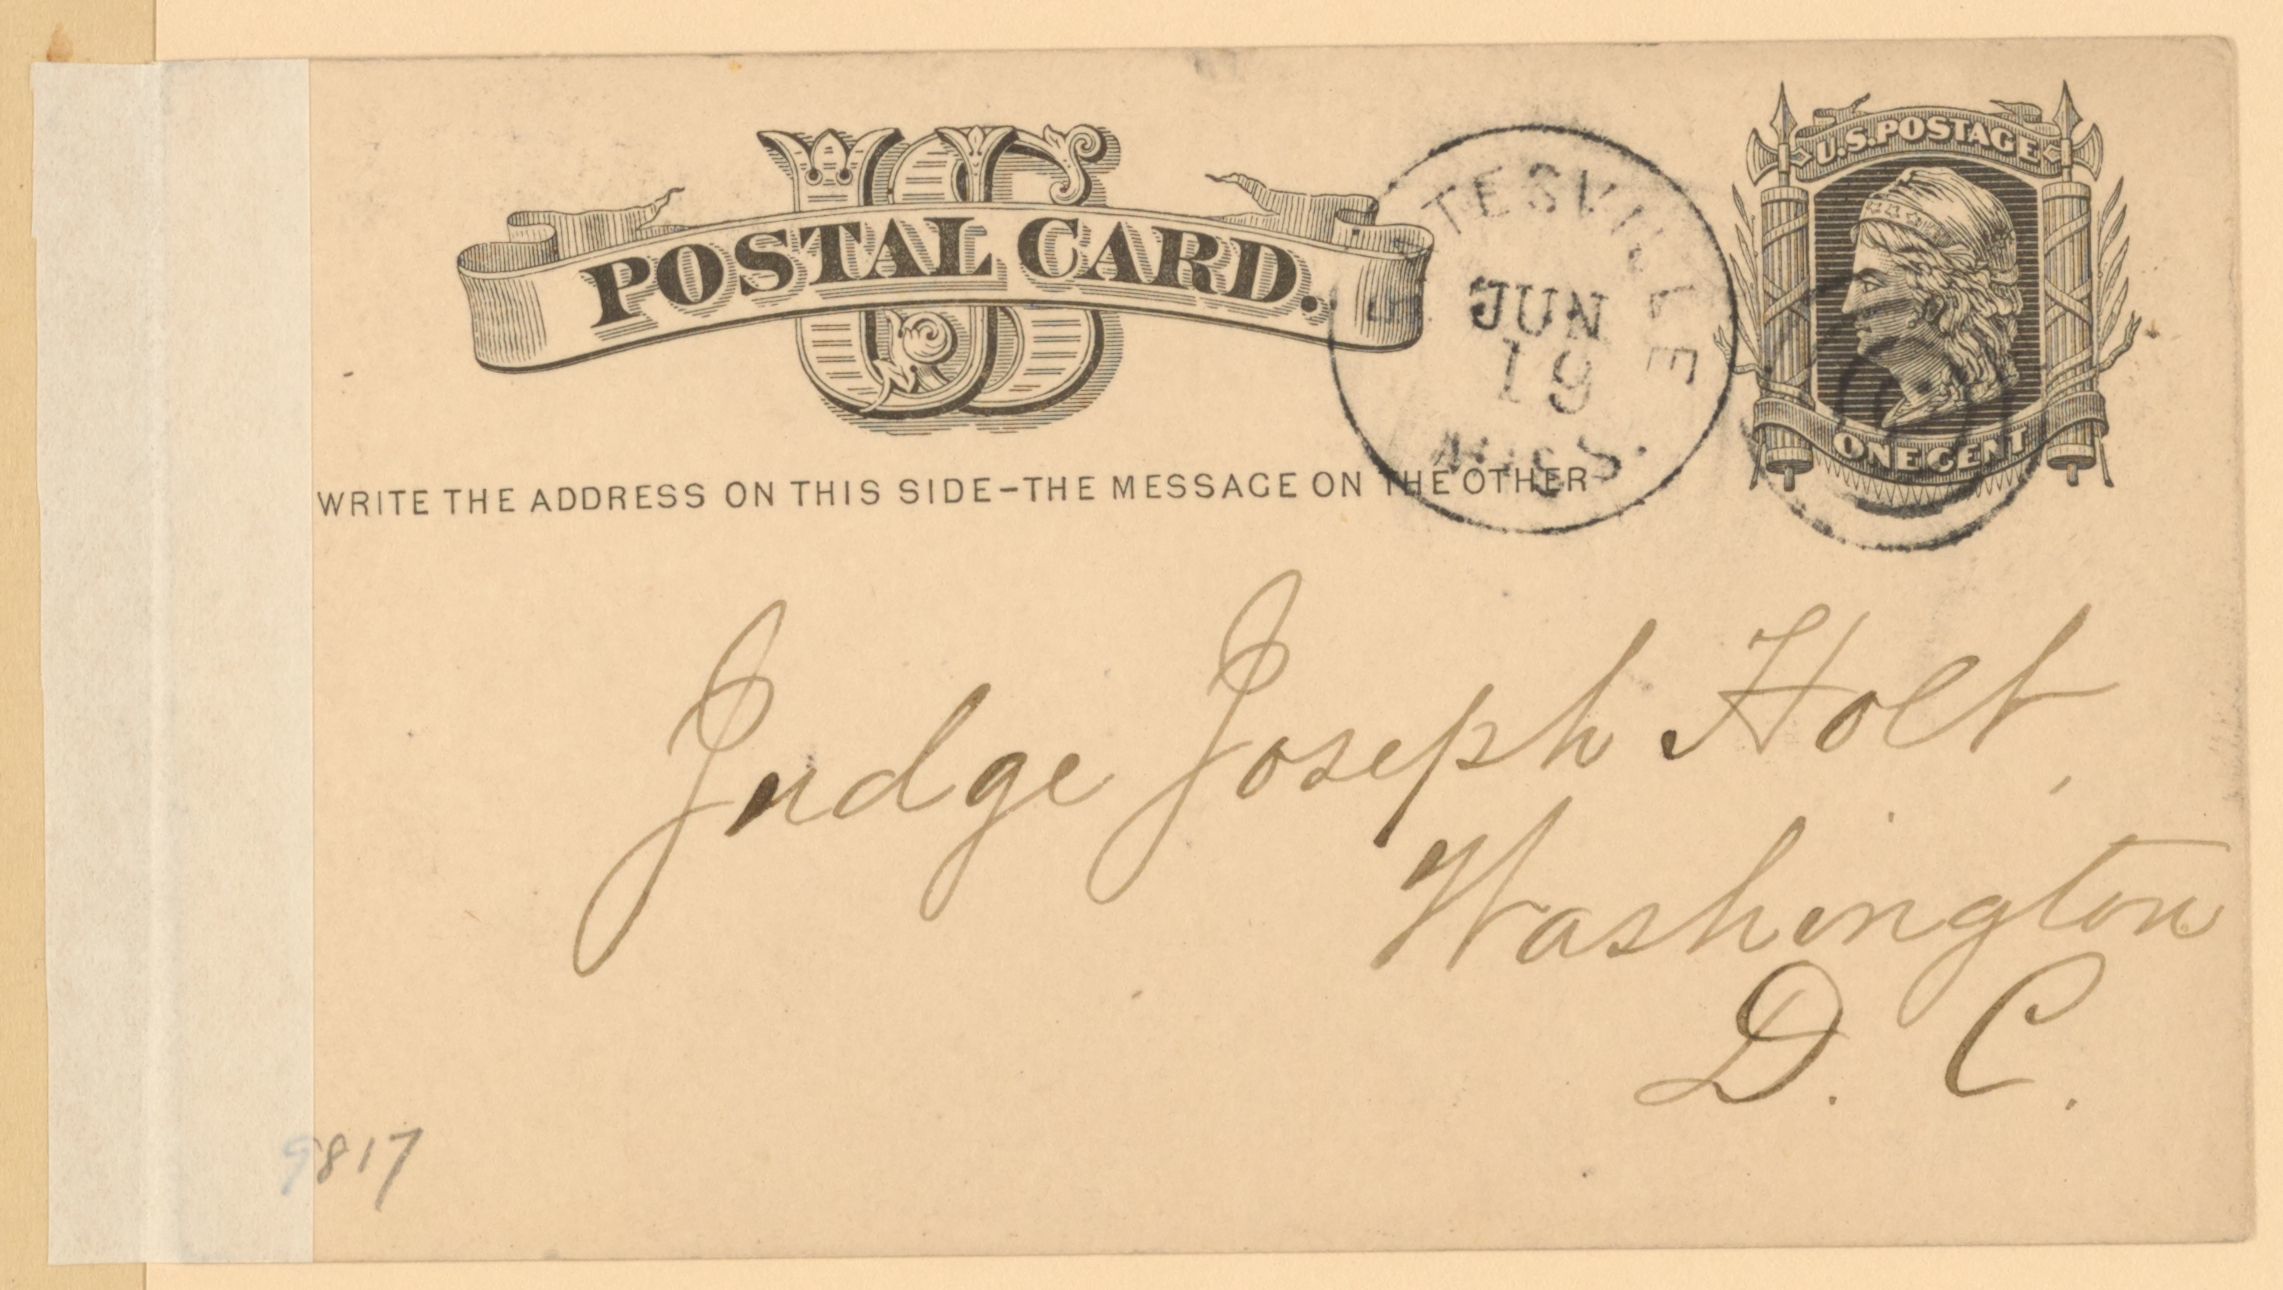 US
POSTAL CARD.
U.S. POSTAGE
ONE CENT
BATESVILLE
JUN
19
MISS.
WRITE THE ADDRESS ON THIS SIDE–THE MESSAGE ON THE OTHER
Judge Joseph Holt,
Washington
D. C.
9817